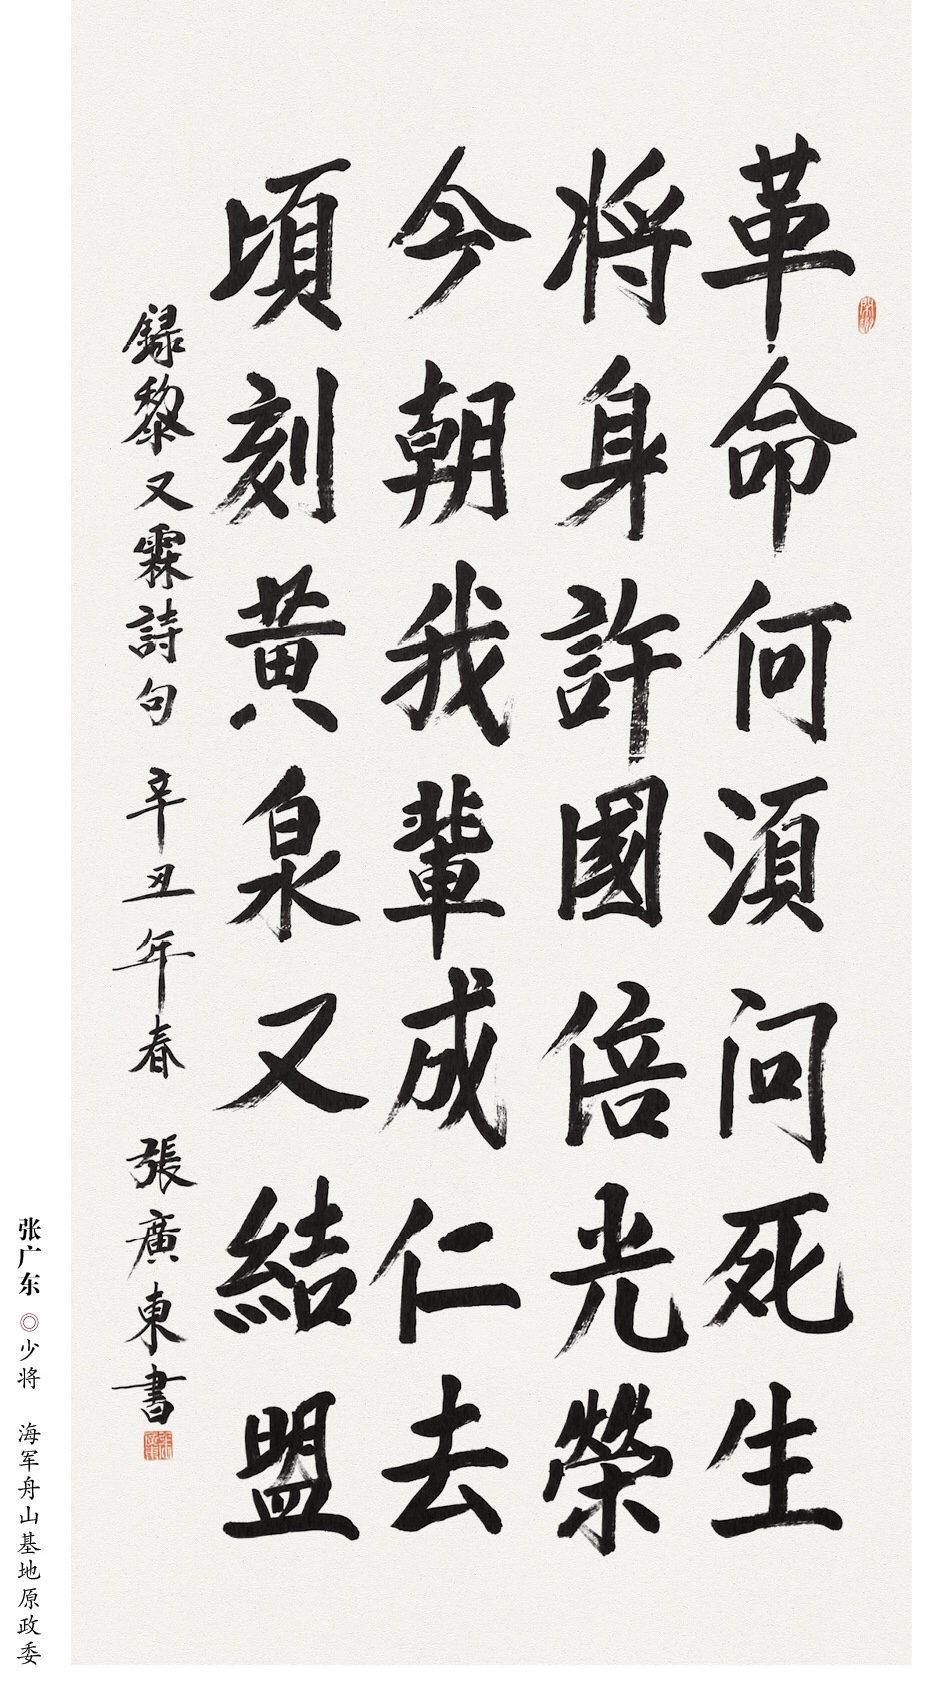 革命何須问死生
将身許國倍光榮
今朝我輩成仁去
頃刻黄泉又結盟
録黎又霖詩句 辛丑年春 張廣東書
张广东 ◎ 少将 海军舟山基地原政委